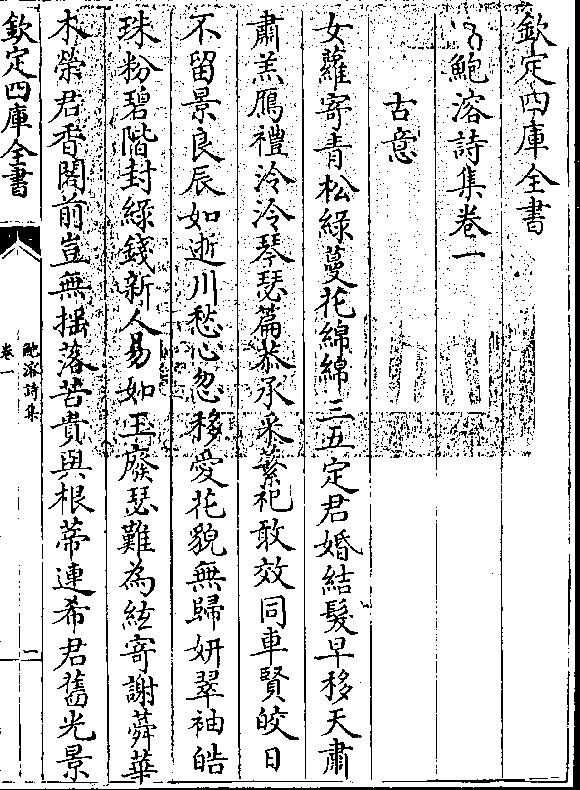 欽定四庫全書
鮑溶詩集卷一
古意
女蘿寄青松綠蔓花綿綿三五定君婚結髮早移天肅
肅羔鴈禮泠泠琴瑟篇恭承采蘩祀敢效同車賢皎日
不留景良辰如逝川愁心忽移愛花貌無歸妍翠袖皓
珠粉碧階封綠錢新人易如玉廢瑟難為絃寄謝蕣華
木榮君香閣前豈無搖落苦貴與根蒂連希君舊光景
欽定四庫全書
鮑溶詩集
卷一
二